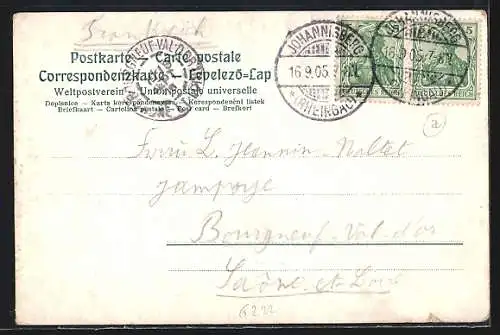 Frankreich
Postkarte — Carte postale
Correspondenzkarte — Levelező-Lap
Weltpostverein — Union postale universelle
Dopisnice — Karta korespondencyjna — Korespondenční lístek
Briefkaart — Cartolina postale — Post card — Brefkort
JOHANNISBERG
16.9.05
(RHEINGAU)
JOHANNISBERG
16.9.05.7-8N
5
DEUTSCHES REICH
a
Herrn L. Jeannin-Naltet
Bourgneuf-Val-d'or
Saône et Loire
6222